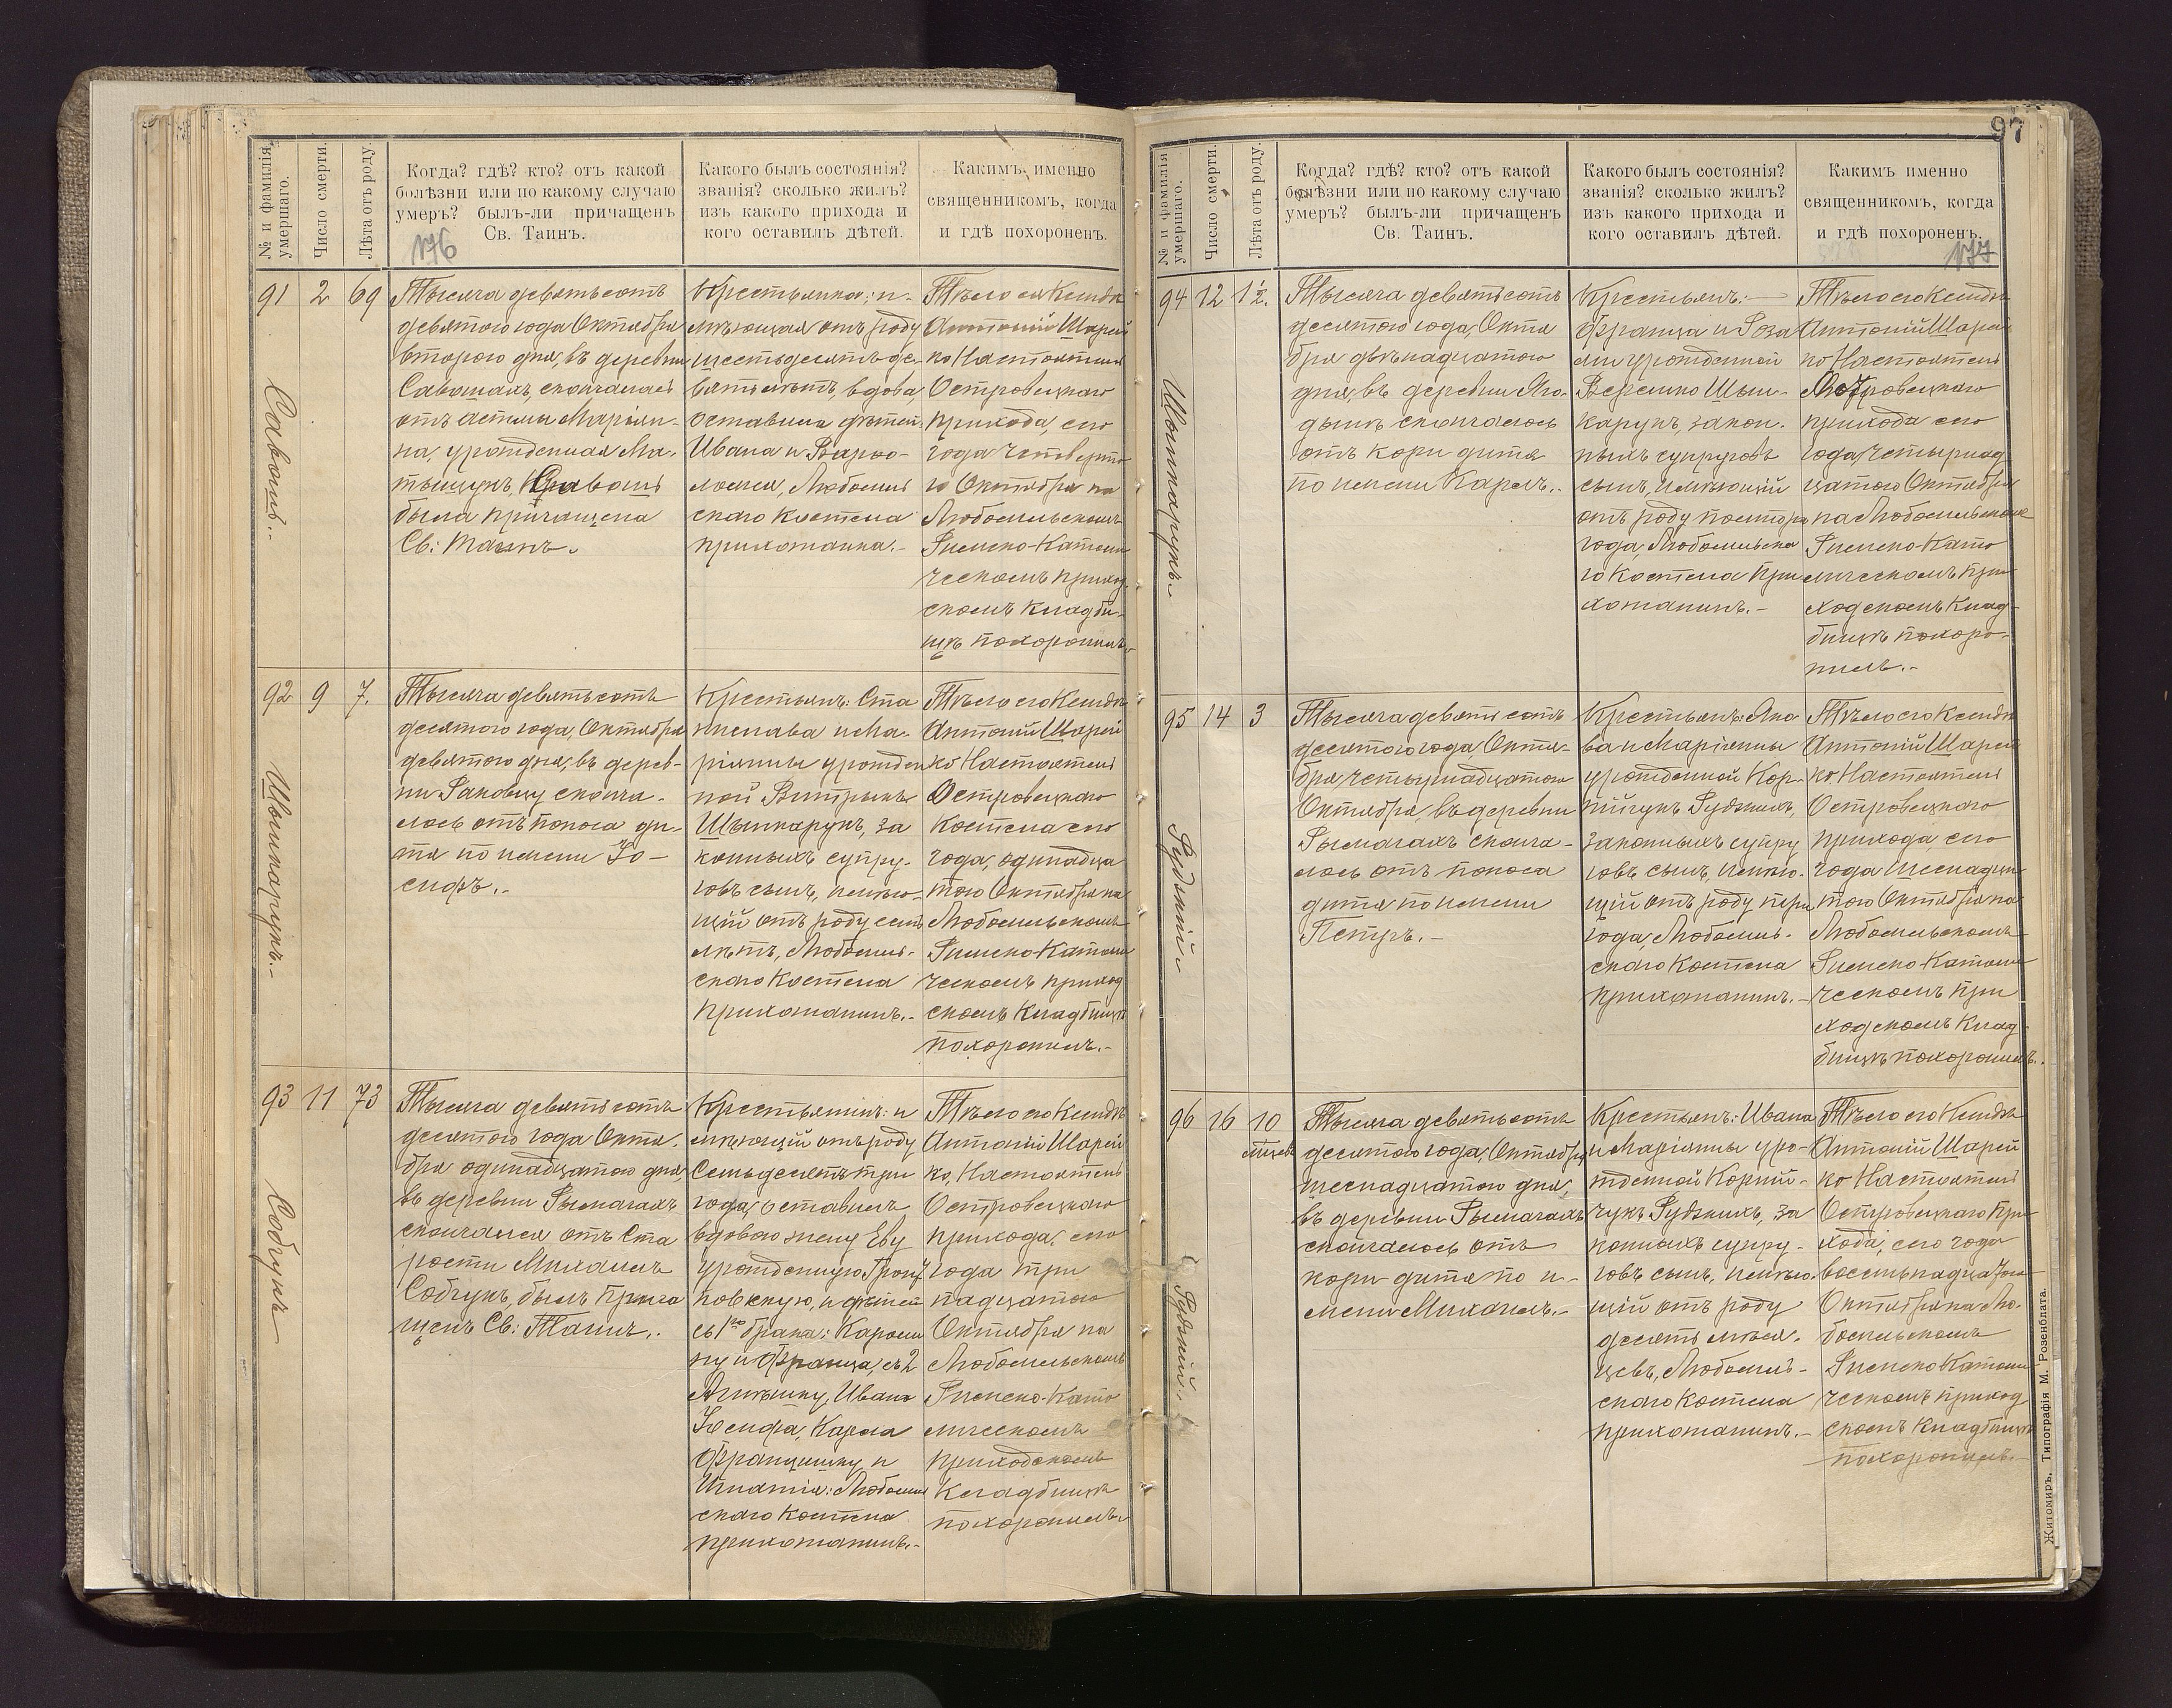 97
№ и фамилія умершаго.
Число смерти.
Лѣта отъ роду.
Когда? гдѣ? кто? отъ какой
болѣзни или по какому случаю
умеръ? былъ-ли причащенъ
Св. Таинъ.
176
Какого былъ состоянія?
званія? сколько жилъ?
изъ какого прихода и
кого оставилъ дѣтей.
Какимъ именно
священникомъ, когда
и гдѣ похороненъ.
91
Саваш.
2
69
Тысяча девятьсотъ
девятого года Октября
второго дня, въ деревни
Савошахъ, скончалась
отъ астмы Маріян-
на, урожденная Ма-
тыщукъ,
была причащена
Св: Таинъ.
Крестьянка: и-
мѣющая отъ роду
шестьдесятъ де-
вять лѣтъ, вдова,
оставила дѣтей:
Ивана и Варѳо-
ломея, Любомль
скаго костела
прихожанка.-
Тѣло ея Ксендзъ
Антоній Шарей
ко Настоятель
Островецкаго
прихода, сего
года четверта
го Октября на
Любомльскомъ
Римско-Католи
ческомъ приход-
скомъ кладби-
щѣ похоронилъ.
92
Шышкарукъ.-
9
7.
Тысяча девятьсотъ
десятого года, Октября
девятого дня, въ дерев-
ни сконча-
лось отъ поноса ди-
тя по имени Іо-
сифъ.-
Крестьянъ: Ста
нислава и Ма-
ріянны урожден
ной
Шышкарукъ, за
конныхъ супру-
говъ сынъ, имѣю-
щій отъ роду семь
лѣтъ, Любомль-
скаго костела
прихожанинъ.-
Тѣло его Ксендзъ
Антоній Шарей
ко Настоятель
Островецкаго
костела сего
года, одинадца
того Октября на
Любомльскомъ
Римско Католи
ческомъ приход
скомъ кладбищѣ
похоронилъ.-
93
Собчукъ
11
73
Тысяча девятьсотъ
десятого года Октя-
бря одинадцатого дня,
въ деревни Рымачахъ
скончался отъ Ста
рости Михаилъ
Собчукъ, былъ прича
щенъ Св: Таинъ.
Крестьянинъ: и
мѣющій отъ роду
Семьдесятъ три
года, оставилъ
вдовою жену Еву
урожденную
новскую, и дѣтей
съ 1го брака: Кароли
ну и Франца, съ 2
Агнѣшку, Ивана
Іосифа, Карла
Францишку и
Игнатія: Любомль
скаго костела
прихожанинъ.-
Тѣло его Ксендзъ
Антоній Шарей
ко, Настоятель
Островецкаго
прихода, сего
года три
надцатого
Октября на
Любомльскомъ
Римско-Като
лическомъ
приходскомъ
Кладбищѣ
похоронилъ
№ и фамилія умершаго.
Число смерти.
Лѣта отъ роду.
Когда? гдѣ? кто? отъ какой
болѣзни или по какому случаю
умеръ? былъ-ли причащенъ
Св. Таинъ.
Какого былъ состоянія?
званія? сколько жилъ?
изъ какого прихода и
кого оставилъ дѣтей.
Какимъ именно
священникомъ, когда
и гдѣ похороненъ.
177
94
Шышкарукъ.
12
1½.
Тысяча девятьсотъ
десятого года, Октя
бря двѣнадцатого
дня, въ деревни Яго-
дынѣ скончалось
отъ кори дитя
по имени Карлъ.
Крестьянъ:
Франца и Роза
ліи урожденной
Веремко Шыш-
карукъ, закон-
ныхъ супруговъ
сынъ, имѣющій
отъ роду полтора
года, Любомльска
го костела при
хожанинъ.-
Тѣло его Ксендзъ
Антоній Шарей
ко Настоятель
Островецкаго
прихода сего
года, четырнад
цатого Октября
на Любомльскомъ
Римско-Като
лическомъ при
ходскомъ клад-
бищѣ похоро-
нилъ.-
95
Рудзкій
14
3
Тысяча девятьсотъ
десятого года, Октя-
бря, четырнадцатого
Октября, въ деревни
Рымачахъ сконча-
лось отъ поноса
дитя по имени
Петръ.-
Крестьянъ: Яко
ва и Маріянны
урожденной Кор-
нійчукъ Рудзкихъ,
законныхъ супру
говъ сынъ, имѣю-
щій отъ роду три
года, Любомль-
скаго костела
прихожанинъ.-
Тѣло его Ксендзъ
Антоній Шарей
ко Настоятель
Островецкаго
прихода, сего
года шеснадца
того Октября на
Любомльскомъ
Римско Католи
ческомъ при
ходскомъ клад-
бищѣ похоронилъ.
96
Рудзкій.
16
10
мѣсяц
Тысяча девятьсотъ
десятого года, Октября
шеснадцатого дня,
въ деревни Рымачахъ
скончалось отъ
кори дитя по и-
мени Михаилъ.-
Крестьянъ: Ивана
и Маріянны уро-
жденной Корній-
чукъ Рудзкихъ, за
конныхъ супру-
говъ сынъ, имѣю-
щій отъ роду
десять мѣся-
цевъ, Любомль-
скаго костела
прихожанинъ.-
Тѣло его Ксендзъ
Антоній Шарей
ко Настоятель
Островецкаго при
хода, сего года
восемьнадцатого
Октября на Лю-
бомльскомъ
Римско Католи
ческомъ приход
скомъ кладбищѣ
похоронилъ.-
Житомиръ. Типографія М. Розенблата.